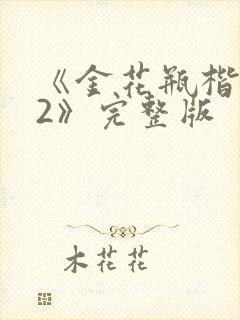 《金花瓶楷
2》完整版
木花花